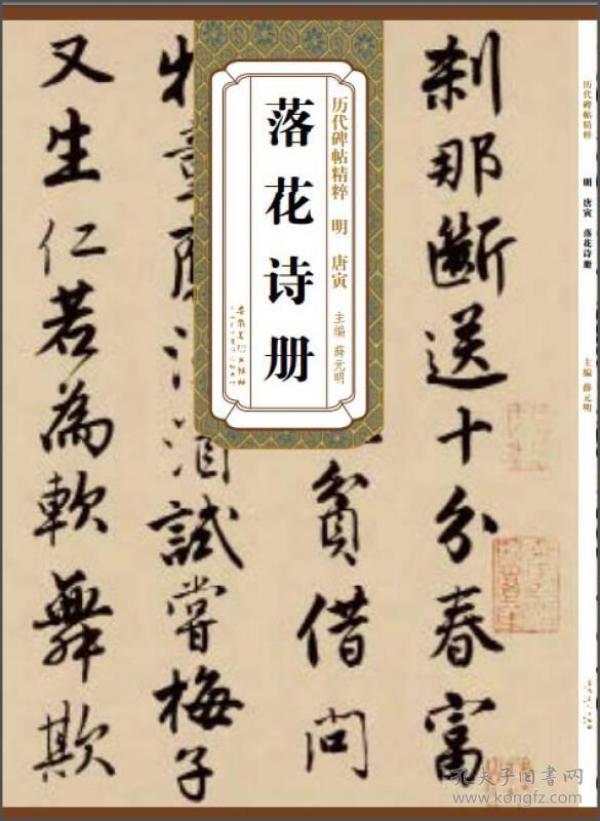 历代碑帖精粹 明 唐寅
主编 薛元明
落花诗册
安徽美术出版社
刹那断送十分春富
贫借问
牧童
酒試嘗梅子
又生仁若為軟舞欺
历代碑帖精粹
明 唐寅 落花诗册
主编 薛元明
孔夫子旧书网
www.kongfz.com